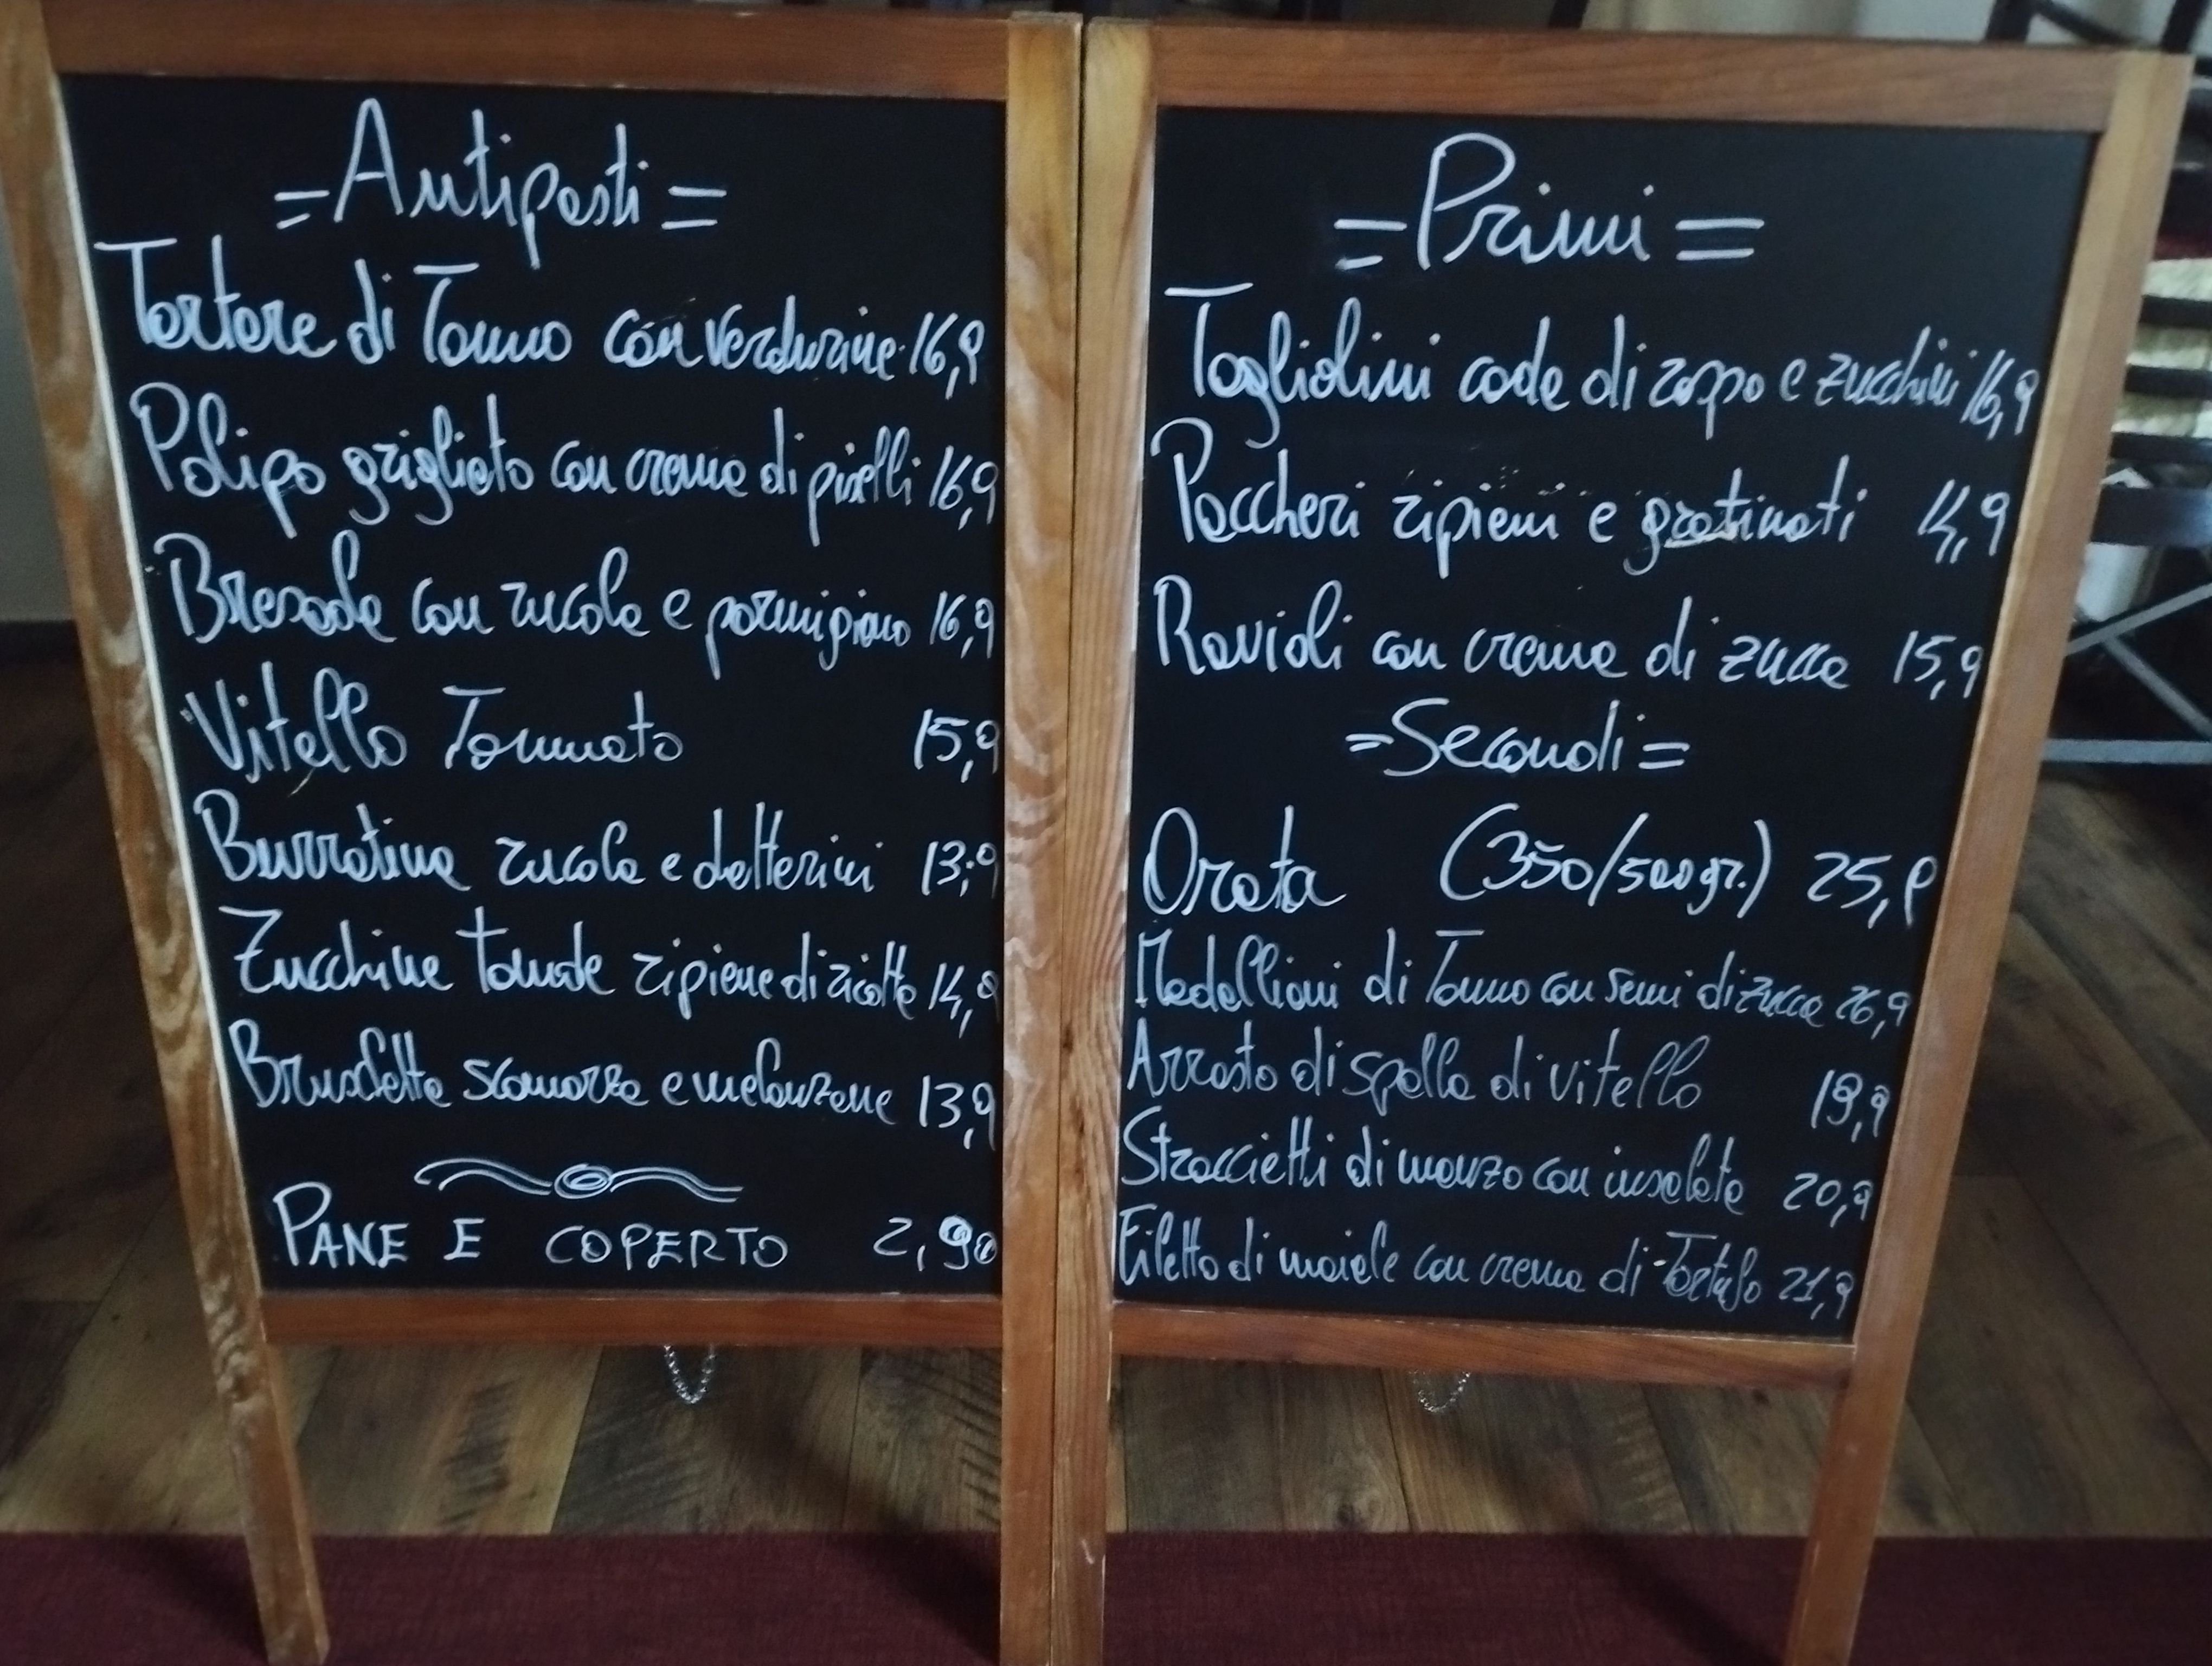 =Antipasti=
Tartare di Tonno con verdurine 16,9
Polipo grigliato con crema di piselli 16,9
Bresaola con rucola e parmigiano 16,9
Vitello Tonnato 15,9
Burratina rucola e datterini 13,9
Zucchine tonde ripiene di ricotta 14,9
Bruschetta scamorza e melanzane 13,9
PANE E COPERTO 2,90
=Primi=
Tagliolini coda di rospo e zucchini 16,9
Paccheri ripieni e gratinati 14,9
Ravioli con crema di zucca 15,9
=Secondi=
Orata (350/500gr.) 25,9
Medallioni di Tonno con semi di zucca 26,9
Arrosto di spalla di vitello 19,9
Straccietti di manzo con insalata 20,9
Filetto di maiale con crema di Tartufo 21,9